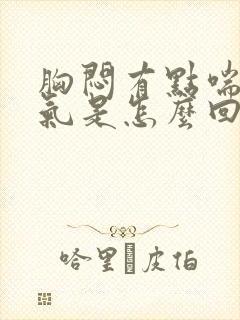 胸悶有點喘
氣是怎麼回
哈里�皮伯